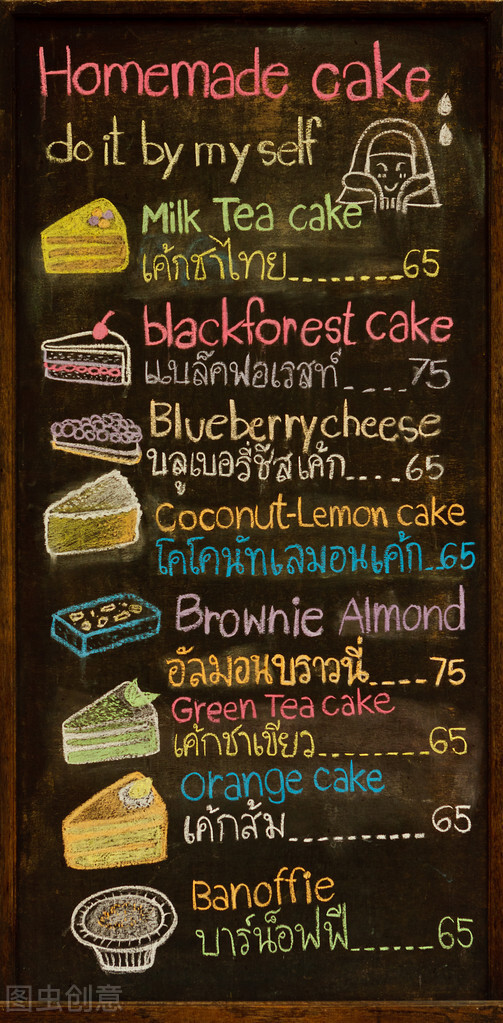 Homemade cake
do it by my self
Milk Tea cake
เค้กชาไทย........65
blackforest cake
แบล็คฟอเรสท์....75
Blueberrycheese
บลูเบอรี่ชีสเค้ก....65
Coconut-Lemon cake
โคโคนัทเลมอนเค้ก..65
Brownie Almond
อัลมอนบราวนี่....75
Green Tea cake
เค้กชาเขียว........65
orange cake
เค้กส้ม..........65
Banoffie
บาร์น็อฟฟี่......65
图虫创意